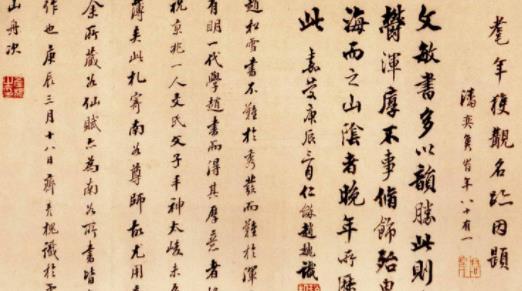 耄年獲觀名跡因題
潘奕雋時年八十有一
文敏書多以韻勝此則
鬱渾厚不事脩飾殆由
海而之山陰者晚年所
此 嘉慶庚辰三月仁龢趙魏識
趙松雪書不難於秀發而難於渾
有明一代學趙書而得其厚意者
祝京兆一人文氏父子丰神太峻未
薄矣此札寄南谷尊師故尤用
余所藏 仙賦亦為南谷所書皆
作也庚辰三月十八日齊彥槐識於
山舟次